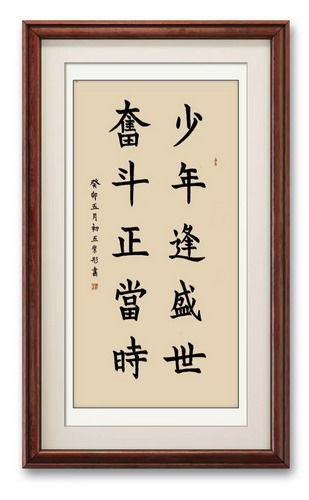 少年逢盛世
奮斗正當時
癸卯五月初五